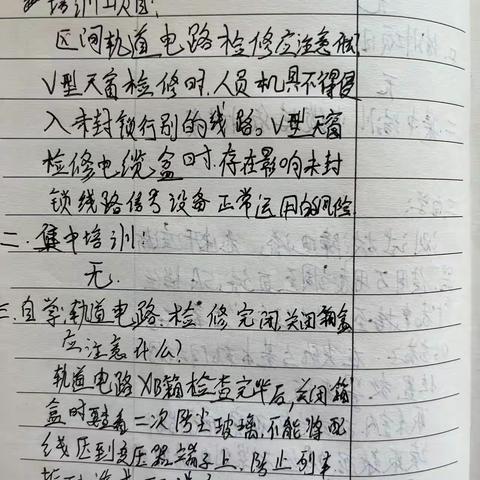 培训项目:
区间轨道电路检修应注意做
V型天窗检修时,人员机具不得侵
入未封锁行别的线路。V型天窗
检修电缆盒时,存在影响未封
锁线路信号设备正常运用的风险
二.集中培训:
无.
三.自学:轨道电路检修完闭,关闭箱盒
应注意什么?
轨道电路XB箱检查完毕后,关闭箱
盒时要查看二次防尘玻璃,不能将配
线压到变压器端子上,防止列车